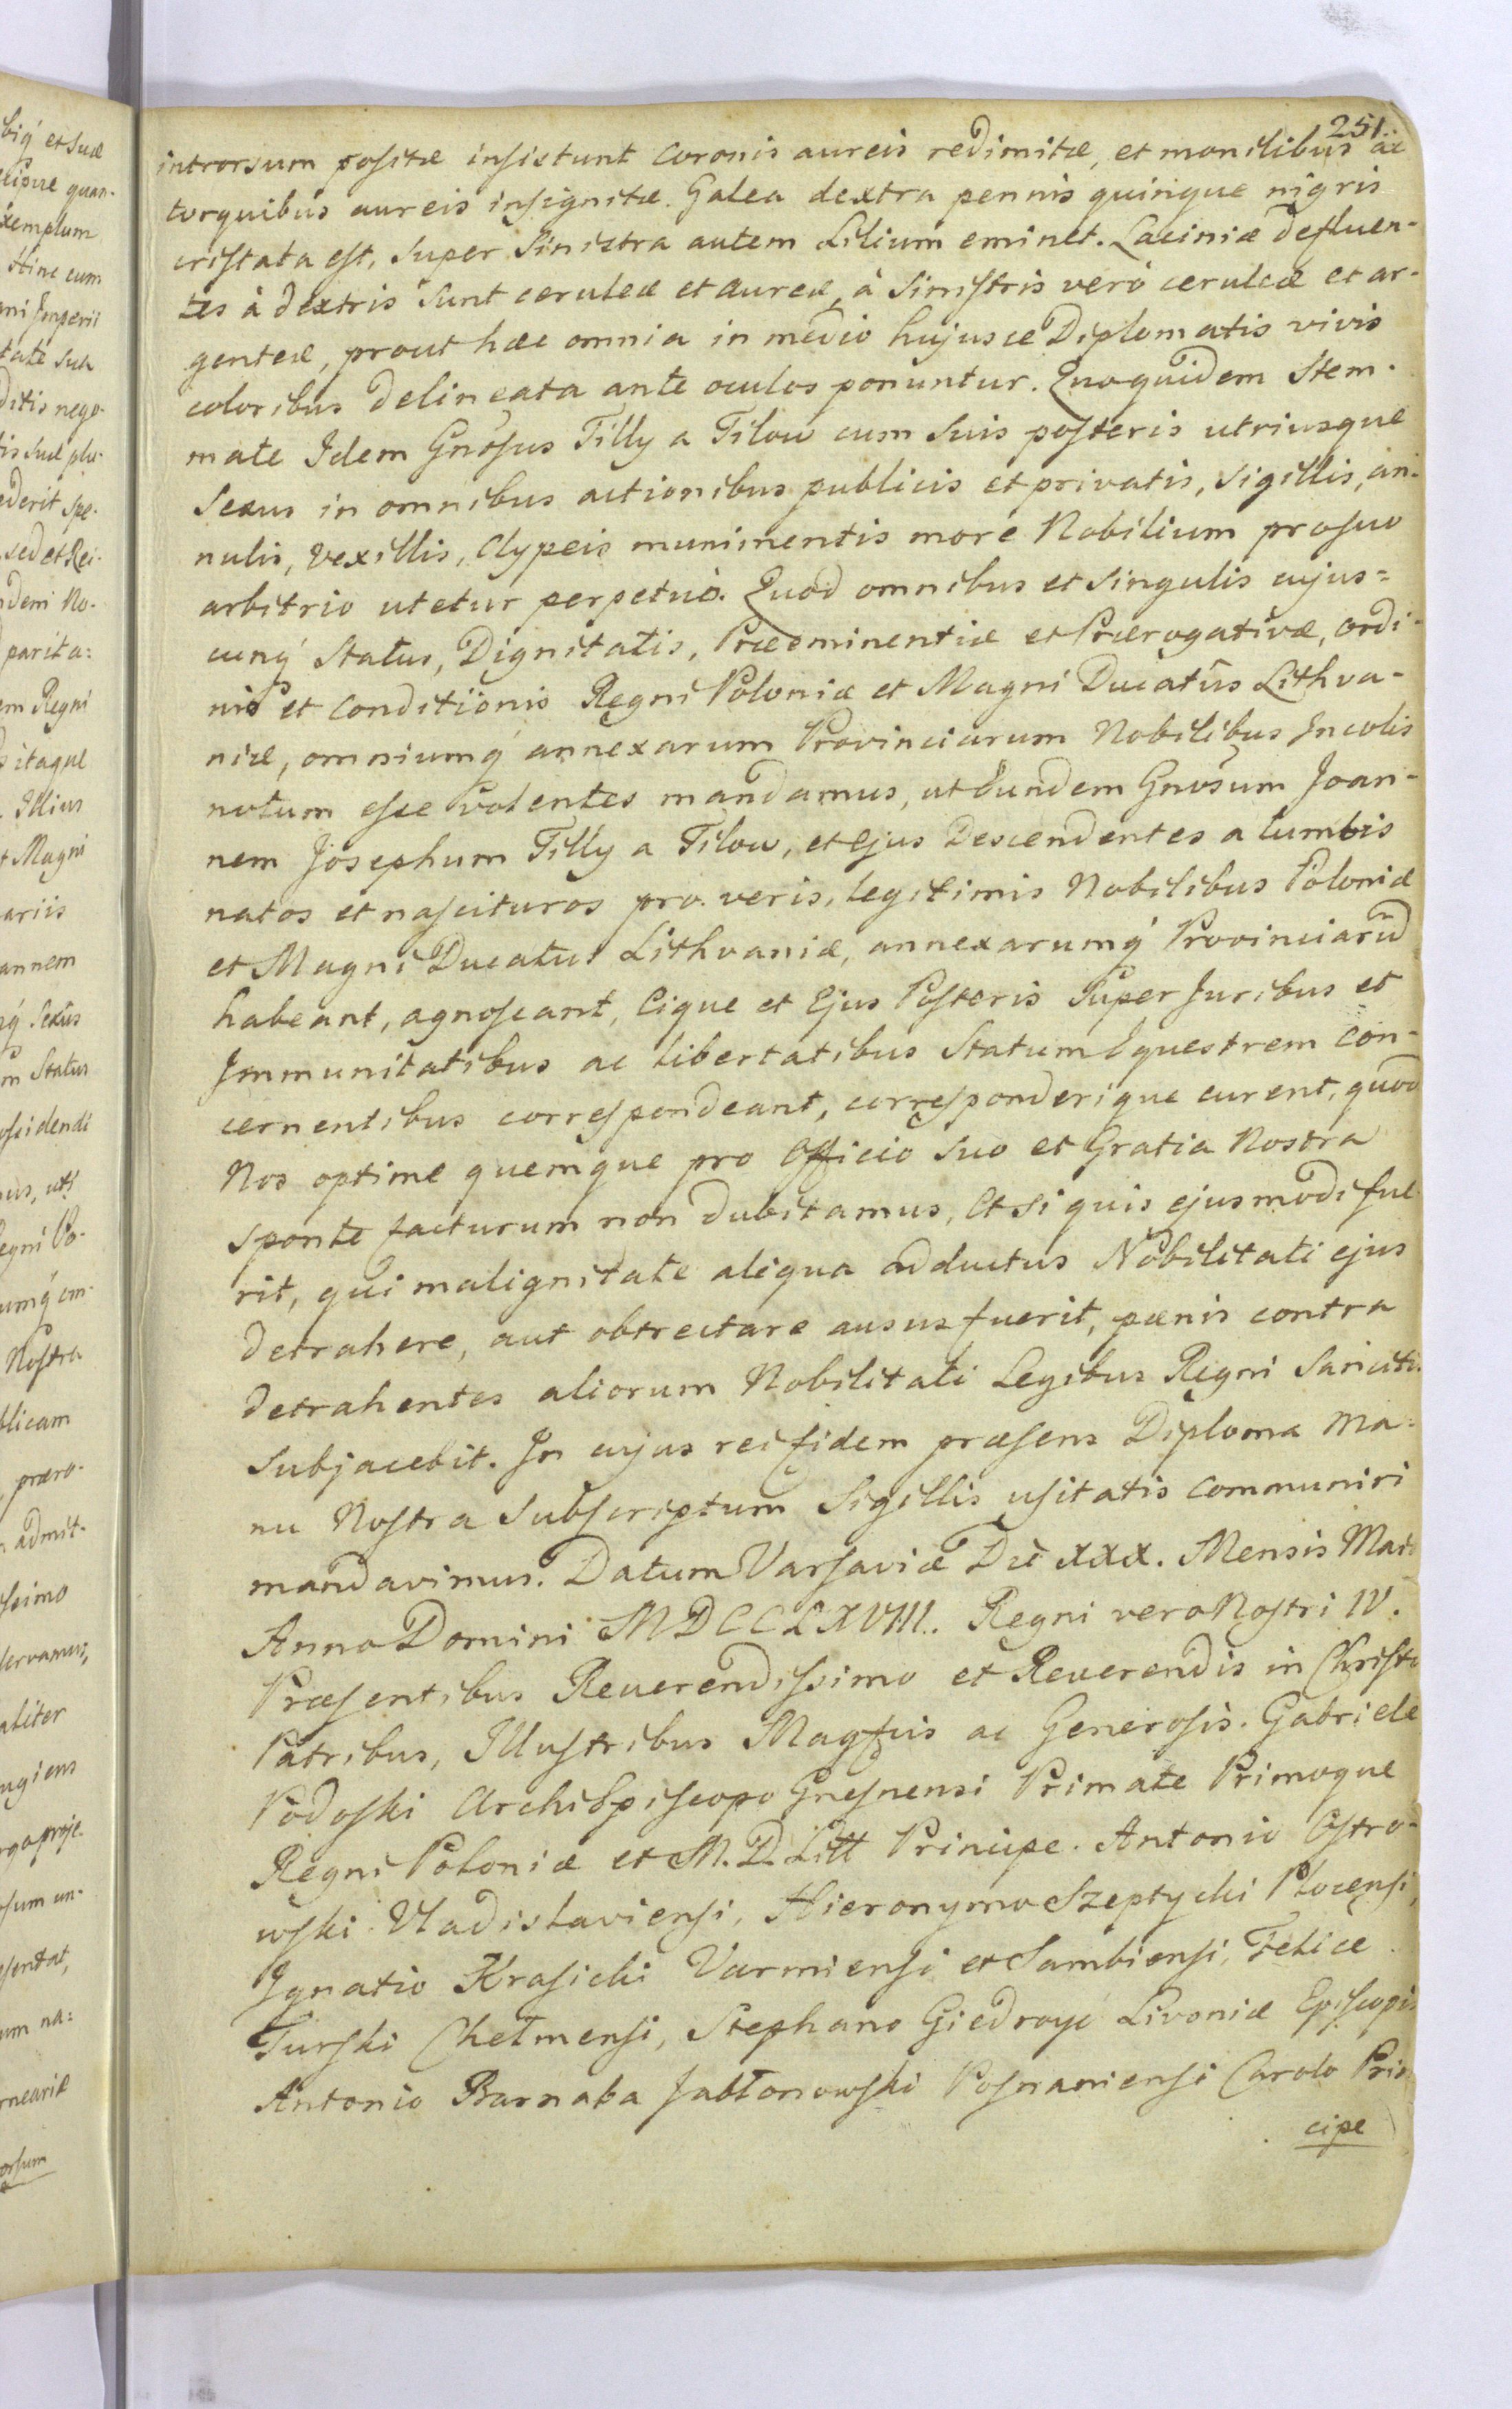 251.
introrsum positæ insistunt Coronis aureis redimitæ, et monilibus ac
torquibus aureis insignitæ. Galea dextra pennis quinque nigris
cristata est, super sinistra autem Lilium eminet. Laciniæ defluen-
tes à dextris sunt ceruleæ et aureæ, à sinistris verò ceruleæ et ar-
genteæ, prout hæc omnia in medio hujusce Diplomatis vivis
coloribus delineata ante oculos ponuntur. Quo quidem Stem-
mate Idem Gnosus Tilly a Tilow cum suis posteris utriusque
Sexus in omnibus actionibus publicis et privatis, sigillis, an-
nulis, vexillis, Clypeis munimentis more Nobilium pro suo
arbitrio utetur perpetuò. Quod omnibus et singulis cujus=
cunq́ Status, Dignitatis, Præeminentiæ et Prærogativæ, ordi-
nis et Conditionis Regni Poloniæ et Magni Ducatûs Lithva-
niæ, omniumq́ annexarum Provinciarum Nobilibus Incolis
notum esse volentes mandamus, ut Eundem Gnosum Joan-
nem Josephum Tilly a Tilow, et ejus Descendentes a lumbis
natos et nascituros pro veris, legitimis Nobilibus Poloniæ
et Magni Ducatus Lithvaniæ, annexarumq́ Provinciarũ
habeant, agnoscant, Eique et Ejus Posteris super Juribus et
Immunitatibus ac libertatibus Statum Equestrem con-
cernentibus correspondeant, corresponderique curent, quod
Nos optime quemque pro Officio suo et Gratia Nostra
sponte facturum non dubitamus, Et si quis ejusmodi fue
rit, qui malignitate aliqua adductus Nobilitati ejus
detrahere, aut obtrectare ausus fuerit, pænis contra
detrahentes aliorum Nobilitati Legibus Regni Sancitis
subjacebit. In cujus rei fidem præsens Diploma Ma=
nu Nostra Subscriptum Sigillis usitatis communiri
mandavimus. Datum Varsaviæ Die XXX. Mensis Mar
Anno Domini MDCCLXVIII. Regni vero Nostri IV.
Præsentibus Reuerendissimo et Reuerendis in Christo
Patribus, Illustribus Magfcis ac Generosis. Gabriele
Podoski ArchiEpiscopo Gnesnensi Primate Primoque
Regni Poloniæ et M. D. Litt Principe. Antonio Ostro-
wski Vladislaviensi, Hieronymo Szeptycki Plocensi,
Ignatio Krasicki Varmiensi et Sambiensi, Felice
Turski Chełmensi, Stephano Giedroyć Livoniæ Episcopis
Antonio Barnaba Jabłonowski Posnaniensi Carolo Prin
cipe